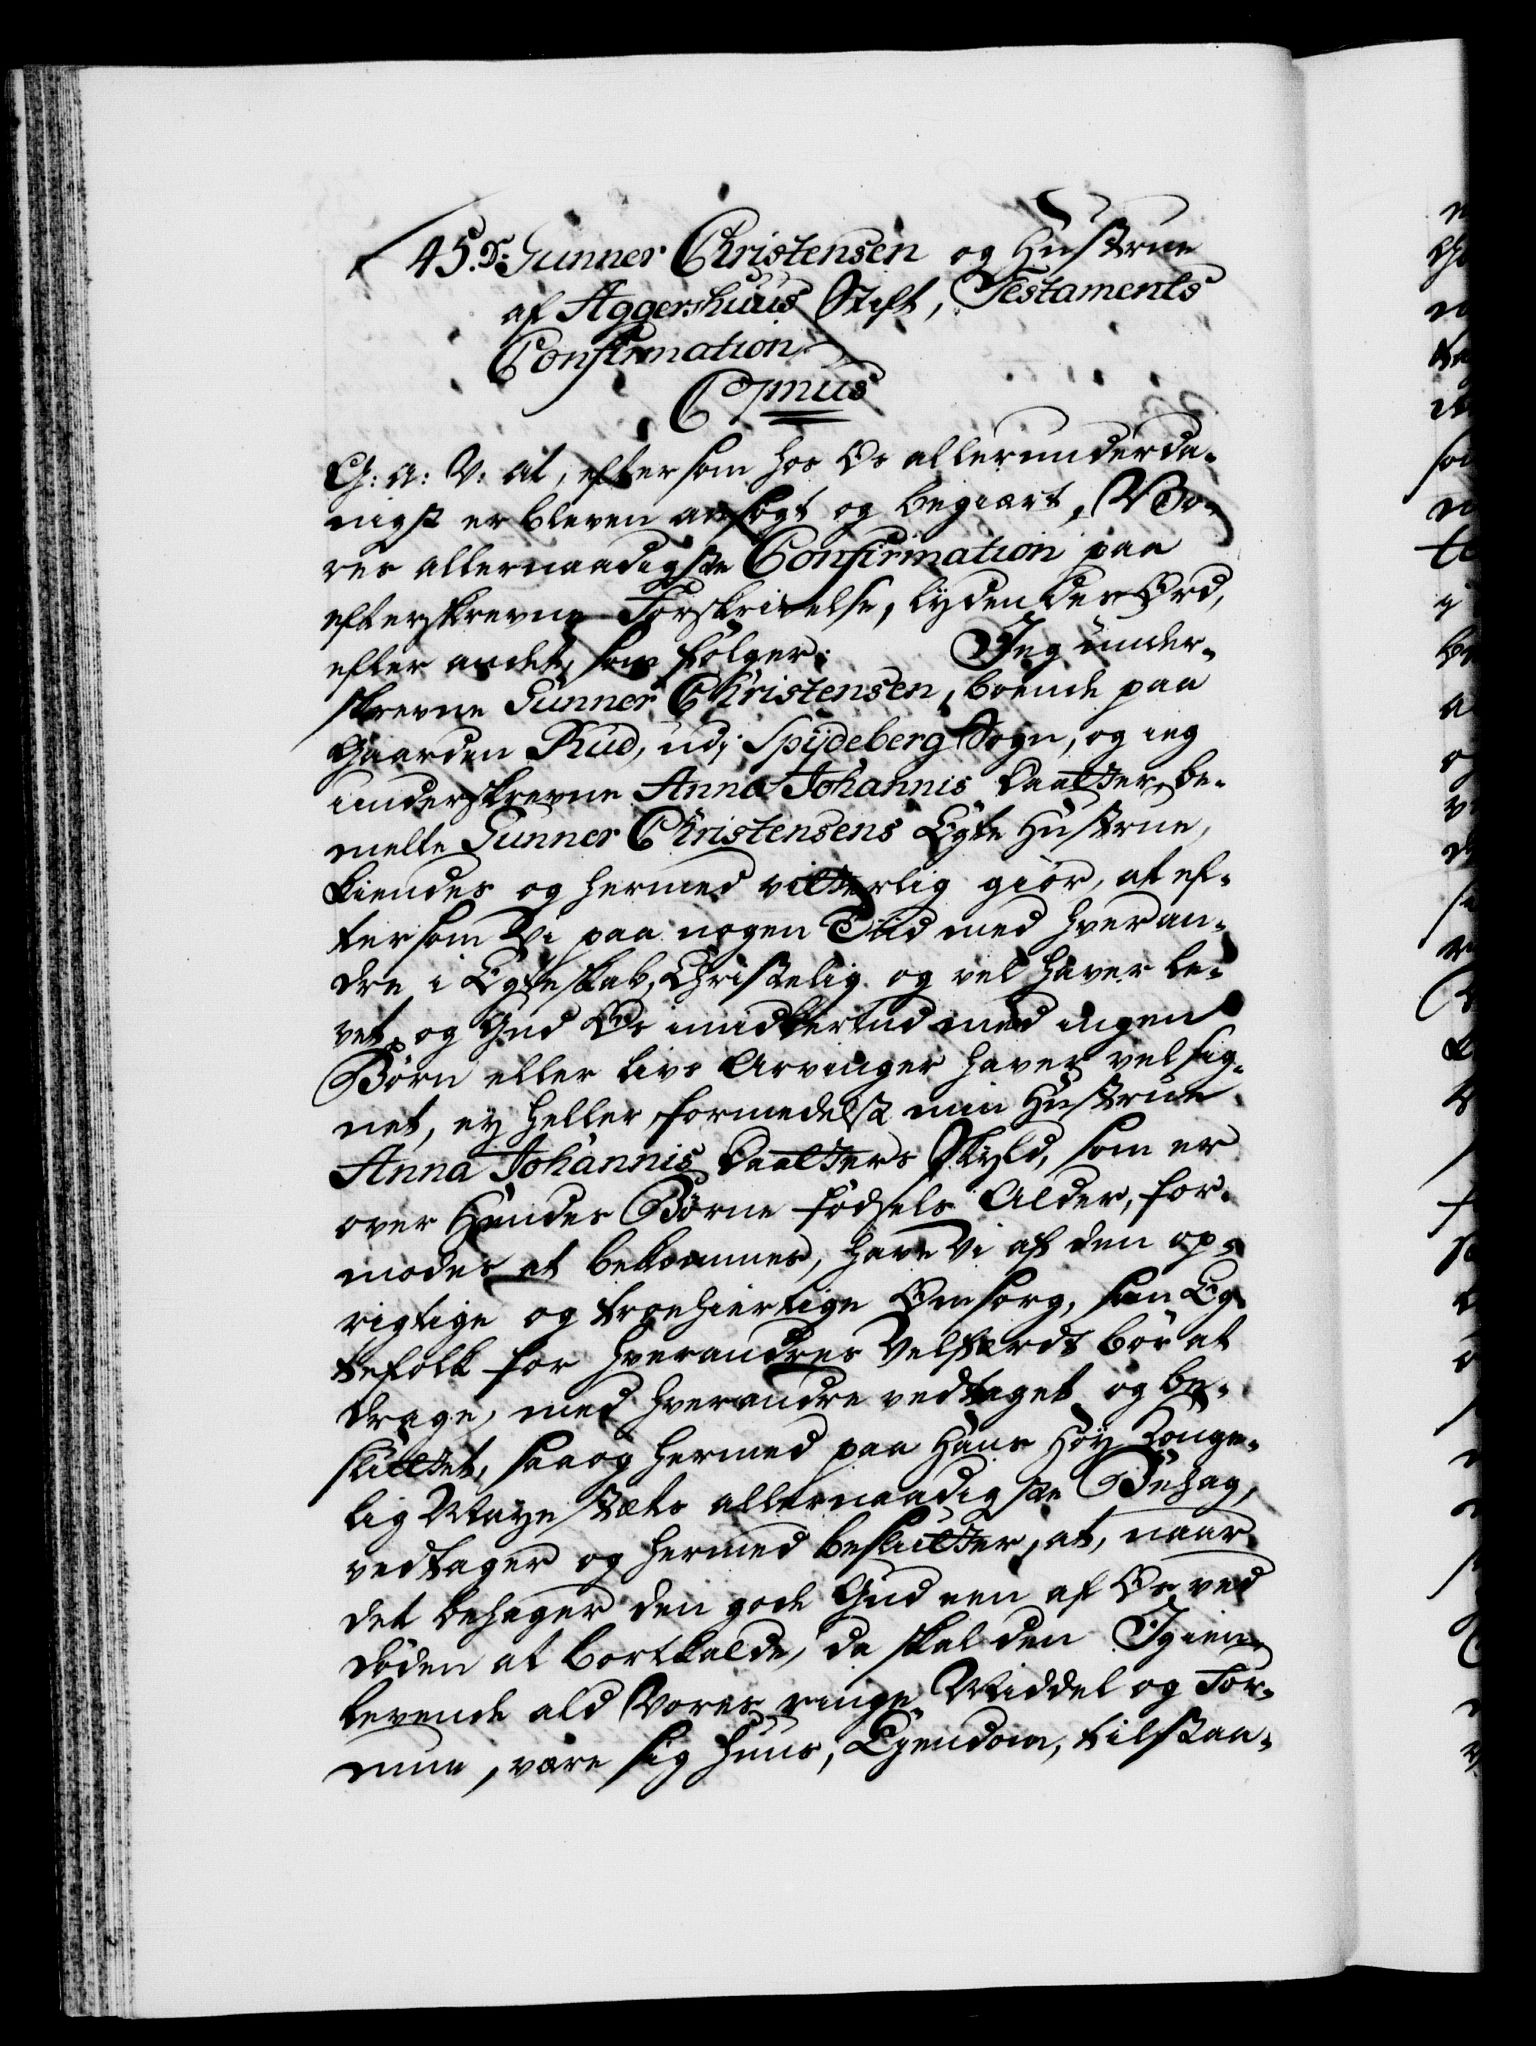 45. Gunner Christensen og Hustrue
af Aggershuus Stift, Testaments
Confirmation
C 7mus
G: a: V: at, eftersom hos Os allerunderda-
nigst er bleven ansøgt og begiært, Vo-
res allernaadigste Confirmation paa
efterskrevne Forskrivelse, lydende Ord,
efter andet, som følger: Jeg under-
skrevne Gunner Christensen, boende paa
Gaarden Rud, udj Spydeberg Sogn, og ieg
underskrevne Anna Johannis Daatter, be-
melte Gunner Christensens Egte Hustrue,
kiendes og hermed vitterlig giør, at ef-
tersom Vi paa nogen Tiid med hveran-
dre i Egteskab, Christelig og vel haver le-
vet, og Gud Os imidlertid med ingen
Børn eller livs Arvinger haver velsig-
net, ey heller formedelst min Hustrue
Anna Johannis Daatters Skyld, som er
over Hendes Børne fødsels Alder, for-
modes at bekomme, have Vi af den op-
rigtige og troehiertige Omsorg, som Eg-
tefolk for hverandres Velfærdt bør at
drage, med hverandre vedtaget og be-
sluttet, saa og hermed paa Hans Høy Konge-
lig Mayestæts allernaadigste Behag,
vedtager og hermed beslutter, at, naar
det behager den gode Gud een af Os ved
døden at bortkalde, da skal den Igien-
levende ald Vores ringe Middel og For-
mue, være sig Huus, Eyendom, tilstaa-